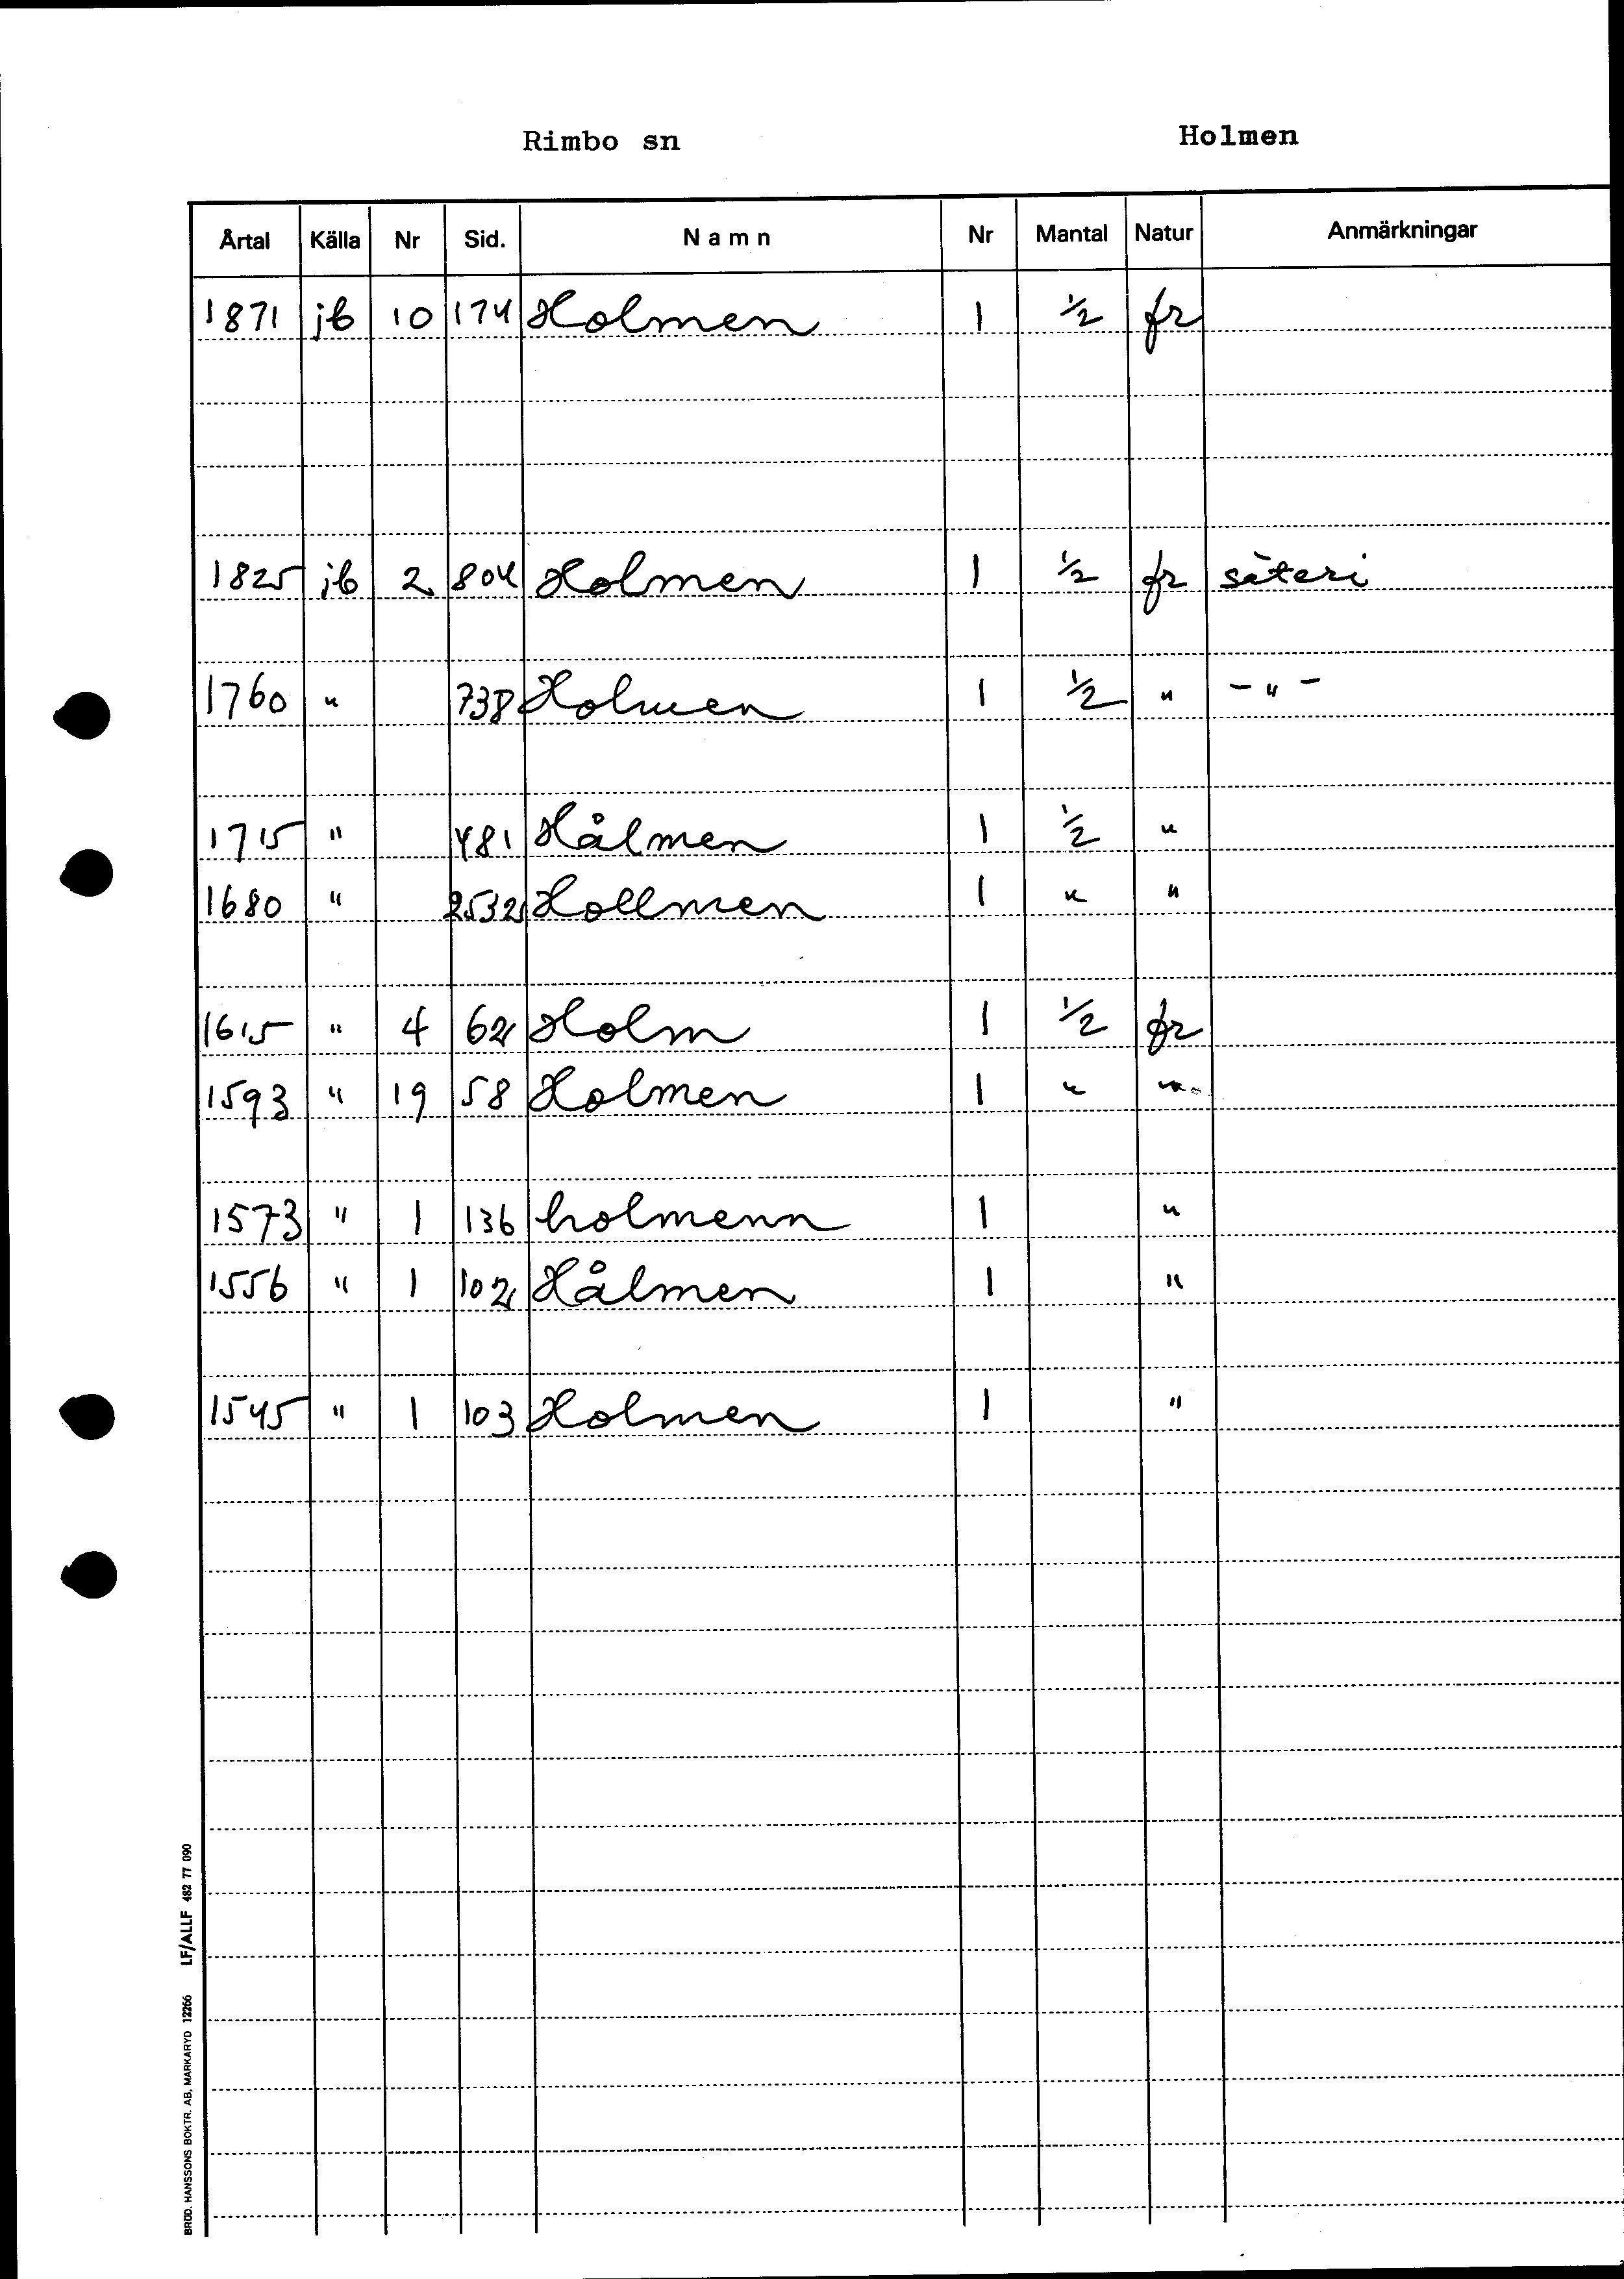 Rimbo sn Holmen
Årtal Källa Nr Sid. Namn Nr Mantal Natur Anmärkningar
1871 jb 10 174 Holmen 1 1/2 fr
1825 jb 2 804 Holmen 1 1/2 fr säteri
1760 " 738 Holmen 1 1/2 " -"-
1715 " 481 Hålmen 1 1/2 "
1680 " 2532 Hollmen 1 " "
1615 " 4 62 Holm 1 1/2 fr
1593 " 19 58 Holmen 1 " "
1573 " 1 136 holmenn 1 "
1556 " 1 102 Hålmen 1 "
1545 " 1 103 Holmen 1 "
BRÖD. HANSSONS BOKTR. AB, MARKARYD 12266 LF/ALLF 482 77 090